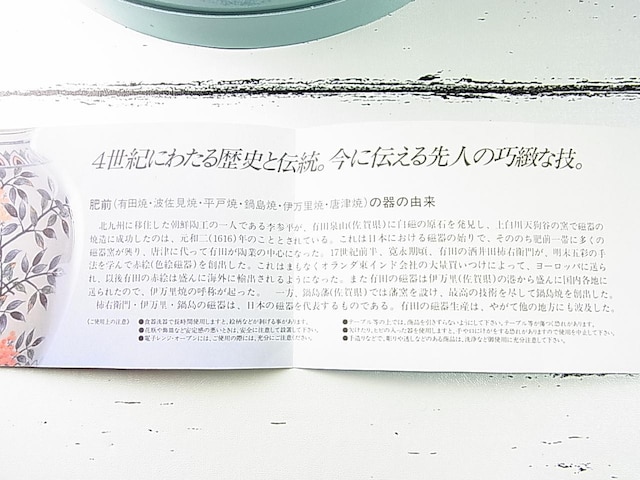 4世紀にわたる歴史と伝統。今に伝える先人の巧緻な技。
肥前(有田焼・波佐見焼・平戸焼・鍋島焼・伊万里焼・唐津焼)の器の由来
北九州に移住した朝鮮陶工の一人である李参平が、有田泉山(佐賀県)に白磁の原石を発見し、上白川天狗谷の窯で磁器の
焼造に成功したのは、元和二(1616)年のこととされている。これは日本における磁器の始りで、そののち肥前一帯に多くの
磁器窯が興り、唐津に代って有田が陶業の中心になった。17世紀前半、寛永期頃、有田の酒井田柿右衛門が、明末五彩の手
法を学んで赤絵(色絵磁器)を創出した。これはまもなくオランダ東インド会社の大量買いつけによって、ヨーロッパに送ら
れ、以後有田の赤絵は盛んに海外に輸出されるようになった。また有田の磁器は伊万里(佐賀県)の港から盛んに国内各地に
送られたので、伊万里焼の呼称が起った。 一方、鍋島藩(佐賀県)では藩窯を設け、最高の技術を尽して鍋島焼を創出した。
柿右衛門・伊万里・鍋島の磁器は、日本の磁器を代表するものである。有田の磁器生産は、やがて他の地方にも波及した。
(ご使用上の注意)
●食器洗器で長時間使用しますと、絵柄などが剥げる事があります。
●花瓶や飾皿など安定感の悪いときは、安全に注意して設置して下さい。
●電子レンジ・オーブンには、ご使用の際には、充分にご注意ください。
●テーブル等の上では、商品を引きずらないようにして下さい。テーブル等が傷つく恐れがあります。
●欠けたり、ヒビの入った器を使用しますと、手や口にけがをする恐れがありますので使用を中止して下さい。
●手造りなどで、彫りや透しなどのある商品は、洗浄など御使用に充分注意して下さい。